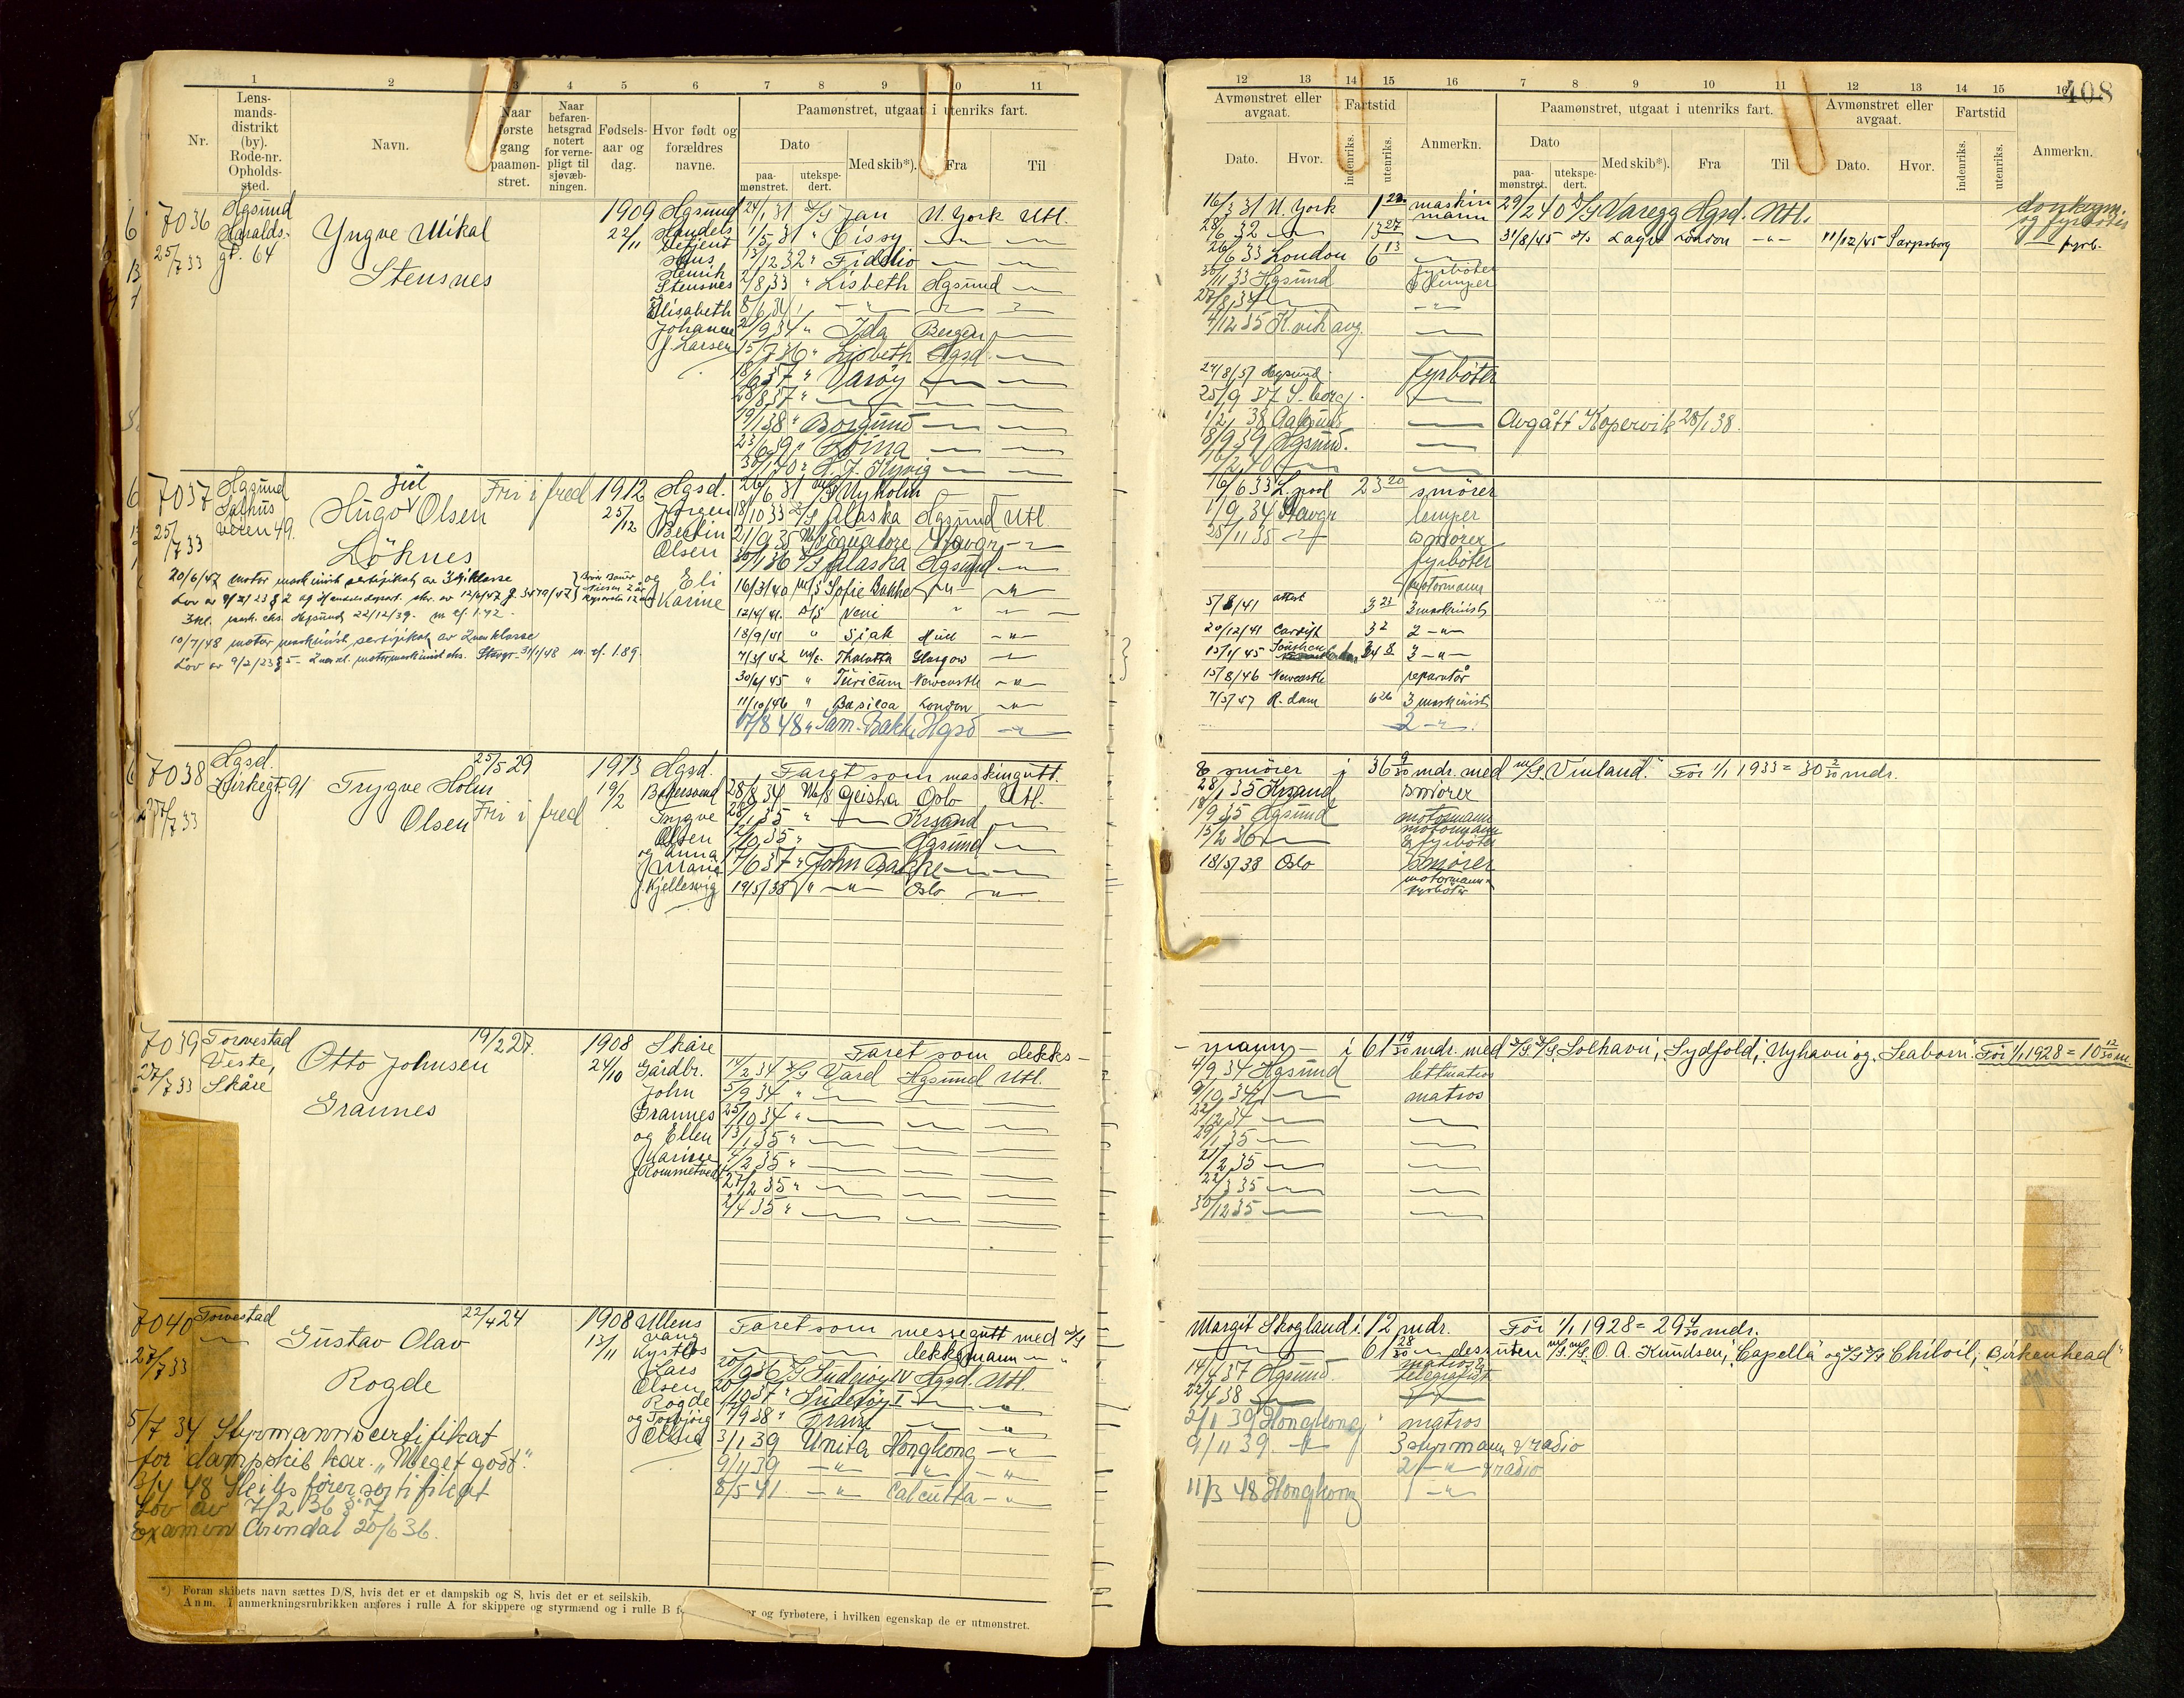 1 2 3 4 5 6 7 8 9 10 11
Nr.
Lens-
mands-
distrikt
(by).
Rode-nr.
Opholds-
sted.
Navn.
Naar
første
gang
paamøn-
stret.
Naar
befaren-
hetsgrad
notert
for verne-
pligt til
sjøvæb-
ningen.
Fødsels-
aar og
dag.
Hvor født og
forældres
navne.
Paamønstret, utgaat i utenriks fart.
Dato
paa-
mønstret.
utekspe-
dert.
Med skib*).
Fra
Til
7036
25/7 33
Hgsund
Haralds-
gt. 64
Yngve Mikal
Stensnes
1909
22/11
Hgsund
Handels
betjent
Hans
Henrik
Stensnes
og
Elisabeth
Johanne
f. Larsen
24/1 31 D/S Jan N. York Utl.
1/5 31 " Cissy
13/12 32 " Fidelio
2/8 33 " Lisbeth Hgsund
8/6 34
21/9 34 " Ida Bergen
15/7 36 " Lisbeth Hgsd.
18/6 37 " Varöy
28/8 37 "
19/1 38 " Borgund
23/6 39 "
30/1 40 "
7037
25/7 33
Hgsund
Salhus
veien 49.
Juel
Hugo Olsen
Löknes
Fri i fred
1912
25/12
Hgsd.
Jörgen
Bertin
Olsen
og Eli
Karine
26/6 31 M/S Nyholm
18/10 33 D/S Alaska Hgsund Utl.
21/9 35 M/S Equatore Stavgr.
30/1 36 D/S Alaska Hgsund
16/3/40 M/S Sofie Bakke
12/4/41. D/S Veni
18/9/41 " Siak Hull
7/3/42 M/S. Thalatta Glasgow
30/6/45 " Turicum Newcastle
11/10/46 " Basilea London
17/8 48 " Sam. Bakke Hgsd
20/6/47 motor maskinist sertifikat av 3dje klasse
3 kl. mask. eks. Hgsund 22/12/39.
10/7/48 motor maskinist sertifikat av 2nen klasse
Lov av 9/2/23 § 5 - 2nen kl. motormaskinist eks. Stavgr. 31/1/48
7038
27/7 33
Hgsd.
Kirkegt. 91
Trygve Holm
Olsen
25/5 29
Fri i fred
1913
19/2
Hgsd.
Trygve
Olsen
og Anna
Maria
f. Kjellesvig
Faret som maskingutt.
28/8 34 M/S Geisha Oslo Utl.
28/1 35 " Krsand
12/10 35 " Hgsund
1/6 37 " John Bakke
19/5/38 " Oslo
7039
27/7 33
Torvestad
Veste,
Skåre
Otto Johnsen
Grannes
19/2 27.
1908
24/10
Skåre
Gårdbr.
John
Grannes
og Ellen
Marine
f. Rommetvedt
Faret som dekks-
14/2 34 D/S Vard Hgsund Utl.
5/9 34 "
25/10 34 "
13/1 35 "
4/2 35 "
27/2 35 "
2/4 35 "
7040
27/7 33
Torvestad
Gustav Olav
Rogde
22/4 24
1908
13/11
Ullens
vang
Kystlos
Lars
Olsen
Rogde
og Torbjörg
Faret som messegutt med D/S
dekksmann
20/9 36 D/S Suderöy IV Hgsd. Utl.
20/10 37 " Suderöy I
17/9 38 "
3/1 39 Unita Hongkong
9/11 39
8/5 41 Calcutta
5/7 34 Styrmannscertifikat
for dampskib kar. "Meget godt."
3/4 48 Skibsförersertifikat
Lov av 7/2 36 § 7
Examen Arendal 20/6 36.
*) Foran skibets navn sættes D/S, hvis det er et dampskib og S, hvis det er et seilskib.
Anm. I anmerkningsrubrikken anføres i rulle A for skippere og styrmænd og i rulle B fo er og fyrbøtere, i hvilken egenskap de er utmønstret.
12 13 14 15 16 7 8 9 10 11 12 13 14 15 16
408
Avmønstret eller
avgaat.
Dato.
Hvor.
Fartstid
indenriks.
utenriks.
Anmerkn.
Paamønstret, utgaat i utenriks fart.
Dato
paa-
mønstret.
utekspe-
dert.
Med skib*).
Fra
Til
Avmønstret eller
avgaat.
Dato.
Hvor.
Fartstid
indenriks.
utenriks.
Anmerkn.
16/3 31 N. York 1 22 maskin
mann
29/2 40 D/S Varegg Hgsd. Utl.
28/6 32 13 27
31/8/45 D/S London 11/12/45 Sarpsborg fyrb.
26/6 33 London 6 13
30/11 33 Hgsund fyrböter
& lemper
27/8 34
4/12 35 K.vik avg.
24/8/37 Hgsund. fyrböter
25/9 37 S.borg
1/2 38 Aalesund Avgått Kopervik 28/1 38.
8/9 39 Hgsund.
16/2 40
16/6 33 L.pool 23 20 smörer
1/9 34 Stavgr lemper
25/11 35 smörer
fyrböter
motormann
5/8/41 attest 3 23 3 maskinist
20/12/41 Cardiff 3 2 2
15/1/45 34 8 3
15/8/46 Newcastle reparatör
7/3/47 R.dam 6 26 3 maskinist
2
& smörer i 36 9/30 mdr. med M/S "Vinland." För 1/1 1933 = 30 2/30 mdr.
28/1 35 Krsand smörer
18/9 35 Hgsund motormann
13/2 36 motormann
& fyrböter
18/5/38 Oslo smörer
motormann
fyrböter
- mann - i 61 19/30 mdr. med D/S D/S Solhavn, Sydfold, Nyhavn og Seaborn. För 1/1 1928 = 10 12/30 m.
4/9 34 Hgsund lettmatros
9/10 34 matros
22/12 34
29/1 35
21/2 35
22/3 35
30/12 35
Margit Skogland i 12 mdr. För 1/1 1928 = 29 4/30 mdr.
61 28/30 dessuten M/S M/S "O. A. Knudsen," "Capella" og D/S D/S Chiloil, "Birkenhead"
14/4 37 Hgsund. matros &
telegrafist
22/4 38
2/1 39 Hongkong matros
9/11 39 3 styrmann & radio
2 & radio
11/3 48 Hongkong 1